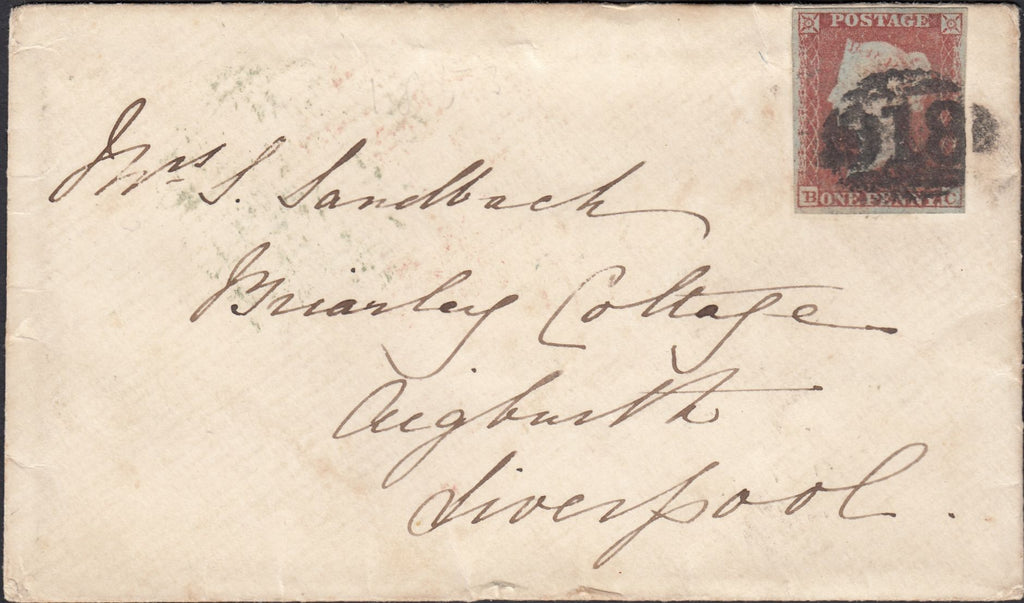 POSTAGE
918
B ONE PENNY C
Mrs S. Sandbach
Briarley Cottage
Aigburth
Liverpool.